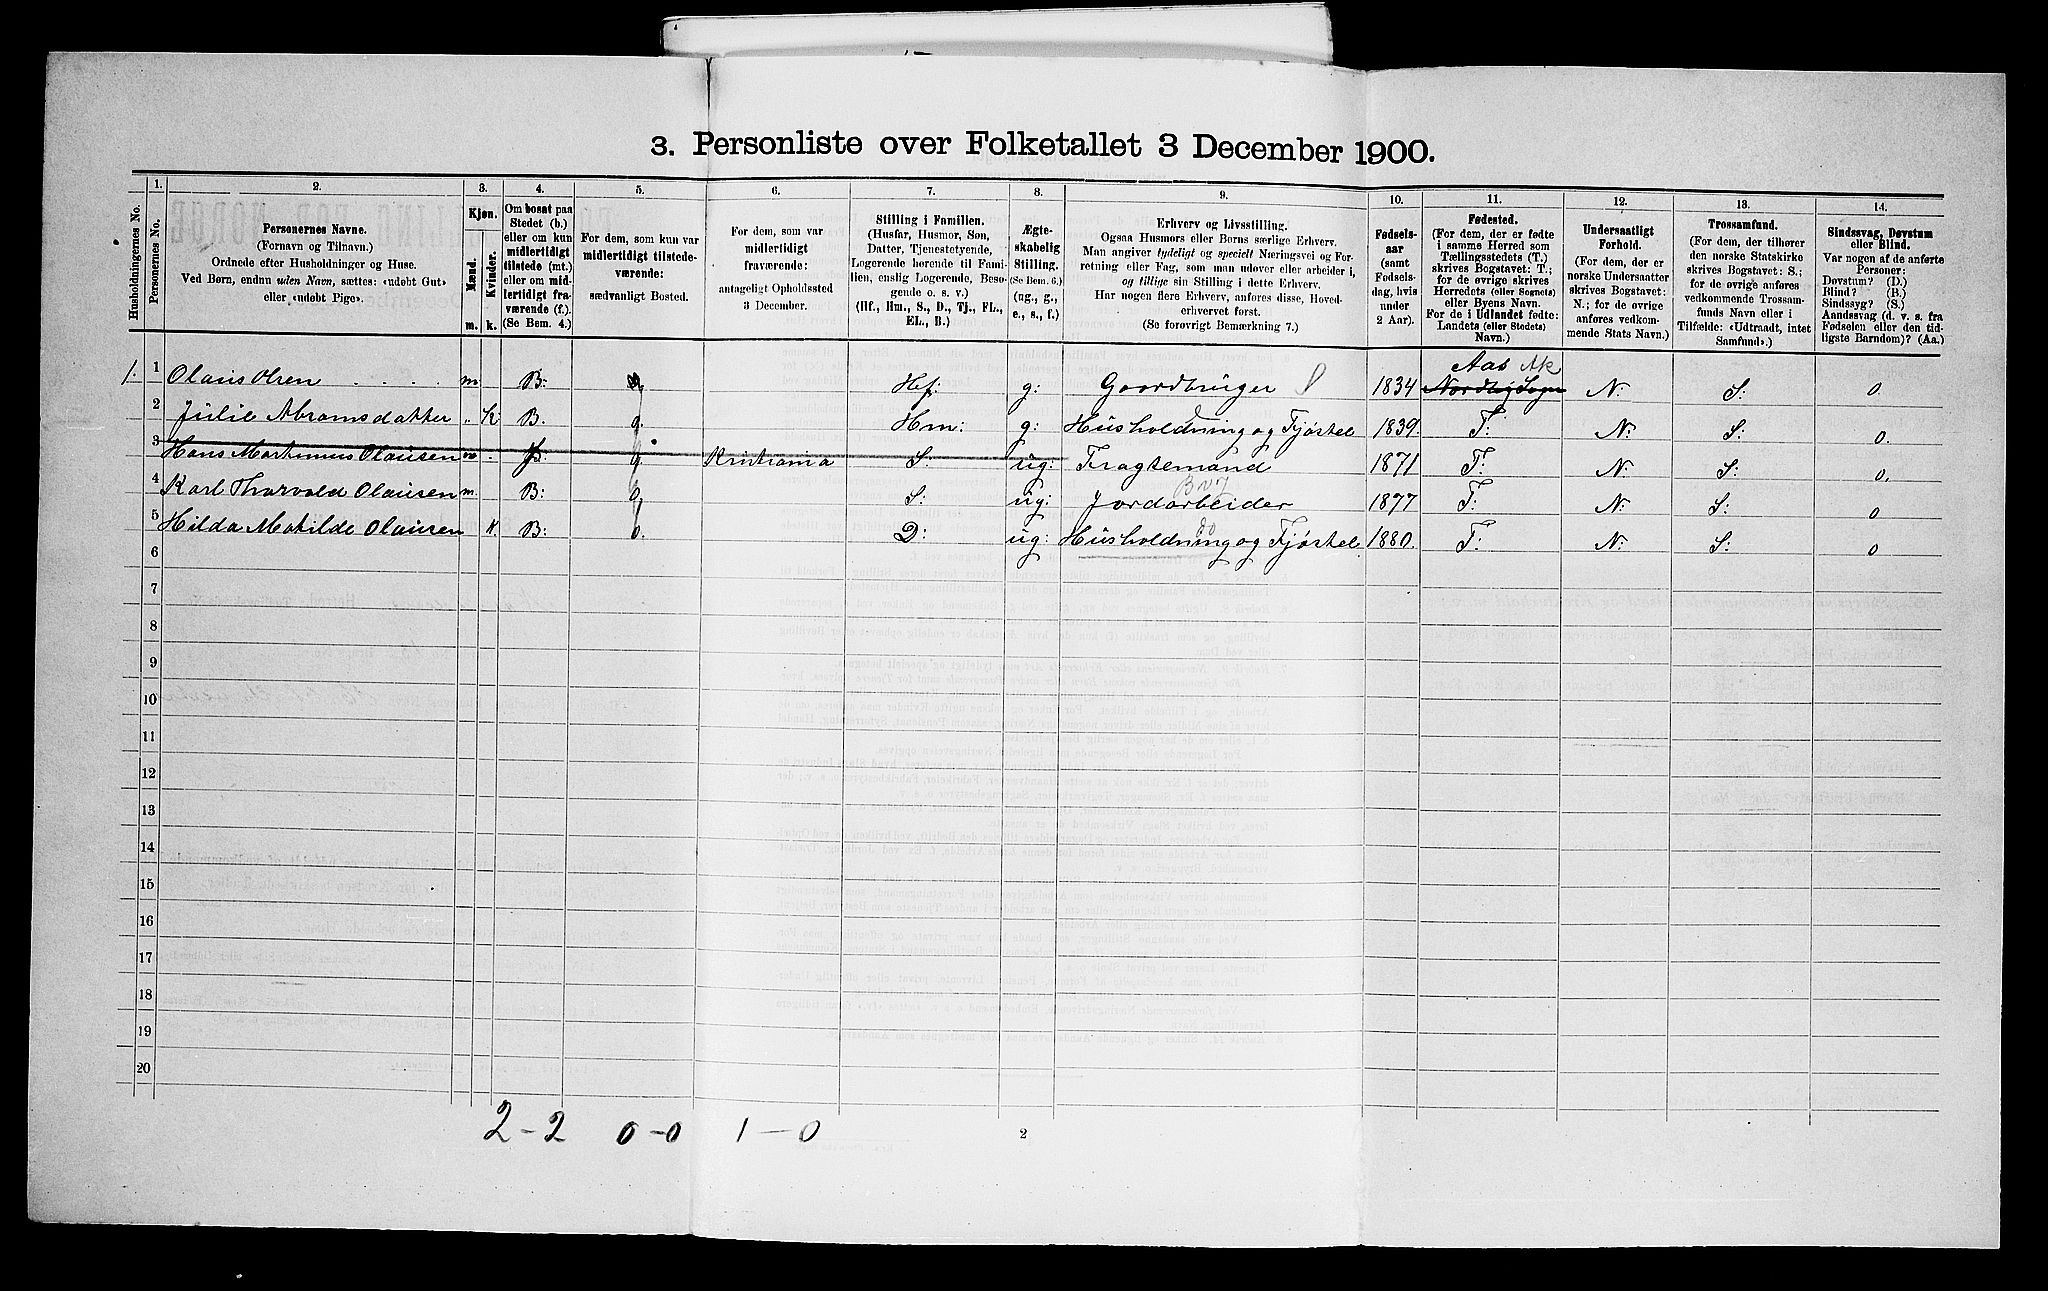 3. Personliste over Folketallet 3 December 1900.
Husholdningernes No.
1.
Personernes No.
2.
Personernes Navne.
(Fornavn og Tilnavn.)
Ordnede efter Husholdninger og Huse.
Ved Børn, endnu uden Navn, sættes: «udøbt Gut»
eller «udøbt Pige».
3.
Kjøn.
Mænd.
Kvinder.
m.
k.
4.
Om bosat paa
Stedet (b.)
eller om kun
midlertidigt
tilstede (mt.)
eller om mid-
lertidigt fra-
værende (f.).
(Se Bem. 4.)
5.
For dem, som kun var
midlertidigt tilstede-
værende:
sædvanligt Bosted.
6.
For dem, som var
midlertidigt
fraværende:
antageligt Opholdssted
3 December.
7.
Stilling i Familien.
(Husfar, Husmor, Søn,
Datter, Tjenestetyende,
Logerende hørende til Fami-
lien, enslig Logerende, Besø-
gende o. s. v.)
(Hf., Hm., S., D., Tj., FL.,
EL., B.)
8.
Ægte-
skabelig
Stilling.
(Se Bem. 6.)
(ug., g.,
e., s., f.)
9.
Erhverv og Livsstilling.
Ogsaa Husmors eller Børns særlige Erhverv.
Man angiver tydeligt og specielt Næringsvei og For-
retning eller Fag, som man udøver eller arbeider i,
og tillige sin Stilling i dette Erhverv.
Har nogen flere Erhverv, anføres disse, Hoved-
erhvervet først.
(Se forøvrigt Bemærkning 7.)
10.
Fødsels-
aar
(samt
Fødsels-
dag, hvis
under
2 Aar).
11.
Fødested.
(For dem, der er fødte
i samme Herred som
Tællingsstedets (T.)
skrives Bogstavet: T.;
for de øvrige skrives
Herredets (eller Sognets)
eller Byens Navn.
For de i Udlandet fødte:
Landets (eller Stedets)
Navn.)
12.
Undersaatligt
Forhold.
(For dem, der er
norske Undersaatter
skrives Bogstavet:
N.; for de øvrige
anføres vedkom-
mende Stats Navn.)
13.
Trossamfund.
(For dem, der tilhører
den norske Statskirke
skrives Bogstavet: S.;
for de øvrige anføres
vedkommende Trossam-
funds Navn eller i
Tilfælde: «Udtraadt, intet
Samfund».)
14.
Sindssvag, Døvstum
eller Blind.
Var nogen af de anførte
Personer:
Døvstum? (D.)
Blind? (B.)
Sindssyg? (S.)
Aandssvag (d. v. s. fra
Fødselen eller den tid-
ligste Barndom)? (Aa.)
1. 1 Olaus Olsen m. B. Hf. g: Gaardbruger 1834 Nordby Sogn Aas Ak N. S: 0.
2 Julie Abramsdatter „ K. B. 0. Hm: g: Husholdning og Fjøstel 1839. T: N: S: 0.
3 Hans Martinius Olausen m. B. 0. Kristiania S: ug: Fragtemand 1871 T: N: S: 0.
4 Karl Thorvald Olausen m. B: 0. S: ug: Jordarbeider 1877 T: N: S: 0
5 Hilda Matilde Olausen K. B: 0. D: ug: Husholdning og Fjøstel do 1880. T: N: S: 0
6
7
8
9
10
11
12
13
14
15
16
17
18
19
20
2 - 2 0 - 0 1 - 0
2